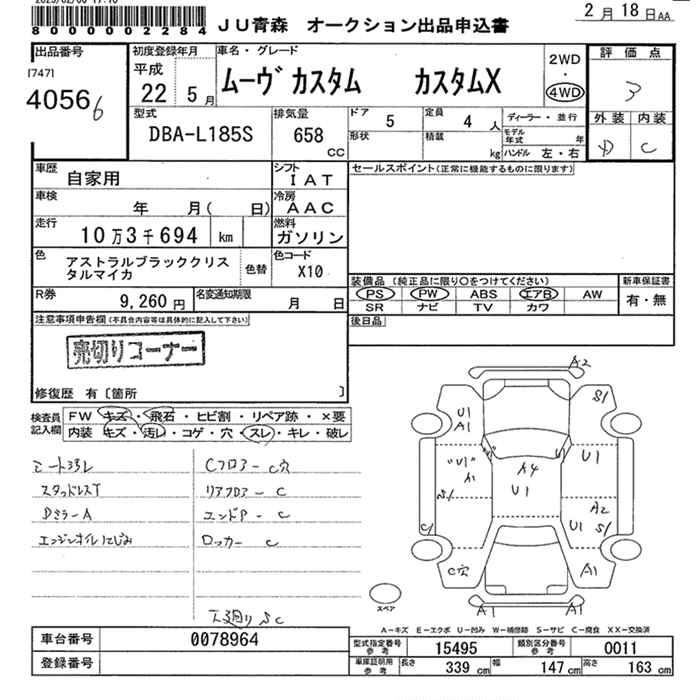 8 0 0 0 0 0 0 2 2 8 4
JU青森 オークション出品申込書
2月18日AA
出品番号
[747]
4056 6
初度登録年月
平成
22 5月
車名・グレード
ムーヴカスタム カスタムX
2WD
・
4WD
評価点
3
外装 内装
D C
型式
DBA-L185S
排気量
658
CC
ドア 5
定員 4 人
形状
積載 kg
ディーラー・並行
モデル年式 年
ハンドル 左・右
車歴
自家用
シフト
IAT
セールスポイント(正常に機能するものに限ります)
車検
年 月( 日)
冷房
AAC
走行
10万3千694 km
燃料
ガソリン
色
アストラルブラッククリスタルマイカ
色替
色コード
X10
R券
9,260円
名変通知期限
月 日
装備品(純正品に限り○をつけてください)
PS PW ABS エアB AW
SR ナビ TV カワ
新車保証書
有・無
後日品
注意事項申告欄(不具合内容等は具体的に記入して下さい)
売切りコーナー
修復歴 有〔箇所 〕
検査員
記入欄
FW キズ・飛石・ヒビ割・リペア跡・×要
内装 キズ・汚レ・コゲ・穴・スレ・キレ・破レ
シートヨゴレ
スタッドレスT
DミラーA
エンジンオイルにじみ
Cフロアー C穴
リアフロアー C
エンドP C
ロッカー C
下廻り SC
A2
S1
U1
A1
"U1"
A1
S1
C1
C穴
U1
A4
U1
U1
A2
U1 S1
A1
A1 A1
スペア
A-キズ E-エクボ U-凹み W-補修跡 S-サビ C-腐食 XX-交換済
車台番号
0078964
登録番号
型式指定番号
参考
15495
類別区分番号
参考
0011
車庫証明用
参考
長さ 339 cm
幅 147 cm
高さ 163 cm